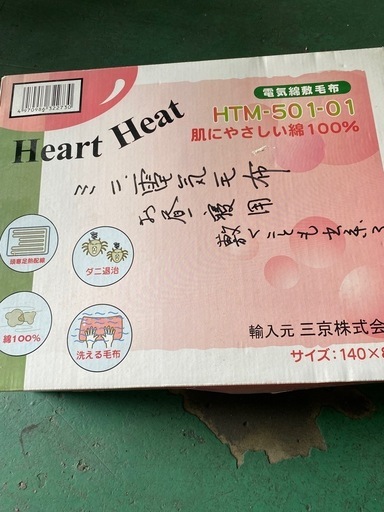 4 970986 322730
Heart Heat
電気綿敷毛布
HTM-501-01
肌にやさしい綿100%
ミニ電気毛布
お昼寝用
敷くことも出来
頭寒足熱配線
ダニ退治
綿100%
洗える毛布
輸入元 三京株式会
サイズ：140×8